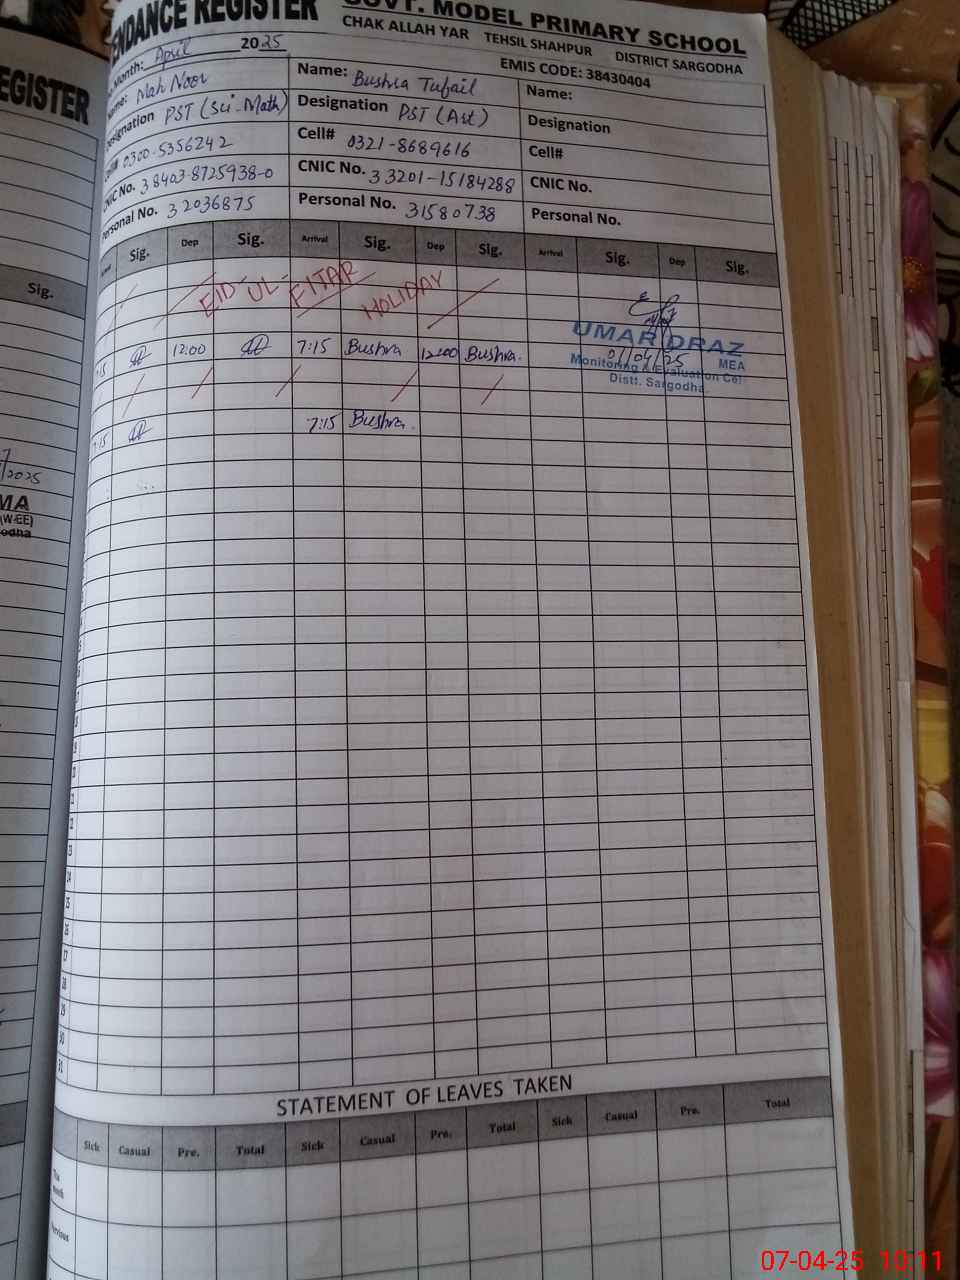 REGISTER
Sig.
/2025
MA
(W-EE)
odha
ENDANCE REGISTER
GOVT. MODEL PRIMARY SCHOOL
CHAK ALLAH YAR TEHSIL SHAHPUR DISTRICT SARGODHA
Month: April 2025
EMIS CODE: 38430404
Name: Mah Noor Name: Bushra Tufail Name:
Designation PST (Sci-Math) Designation PST (Art) Designation
Cell# 0300-5356242 Cell# 0321-8689616 Cell#
CNIC No. 38403-8725938-0 CNIC No. 33201-15184288 CNIC No.
Personal No. 32036875 Personal No. 31580738 Personal No.
Sig. Dep Sig. Arrival Sig. Dep Sig. Arrival Sig. Dep Sig.
EID UL-FITAR HOLIDAY
12:00 7:15 Bushra 12:00 Bushra.
UMAR DRAZ
01/04/25 MEA
Monitoring & Evaluation Cell
Distt. Sargodha.
7:15 7:15 Bushra.
28
29
30
31
STATEMENT OF LEAVES TAKEN
Sick Casual Pre. Total Sick Casual Pre. Total Sick Casual Pre. Total
This Month
Previous
07-04-25 10:11